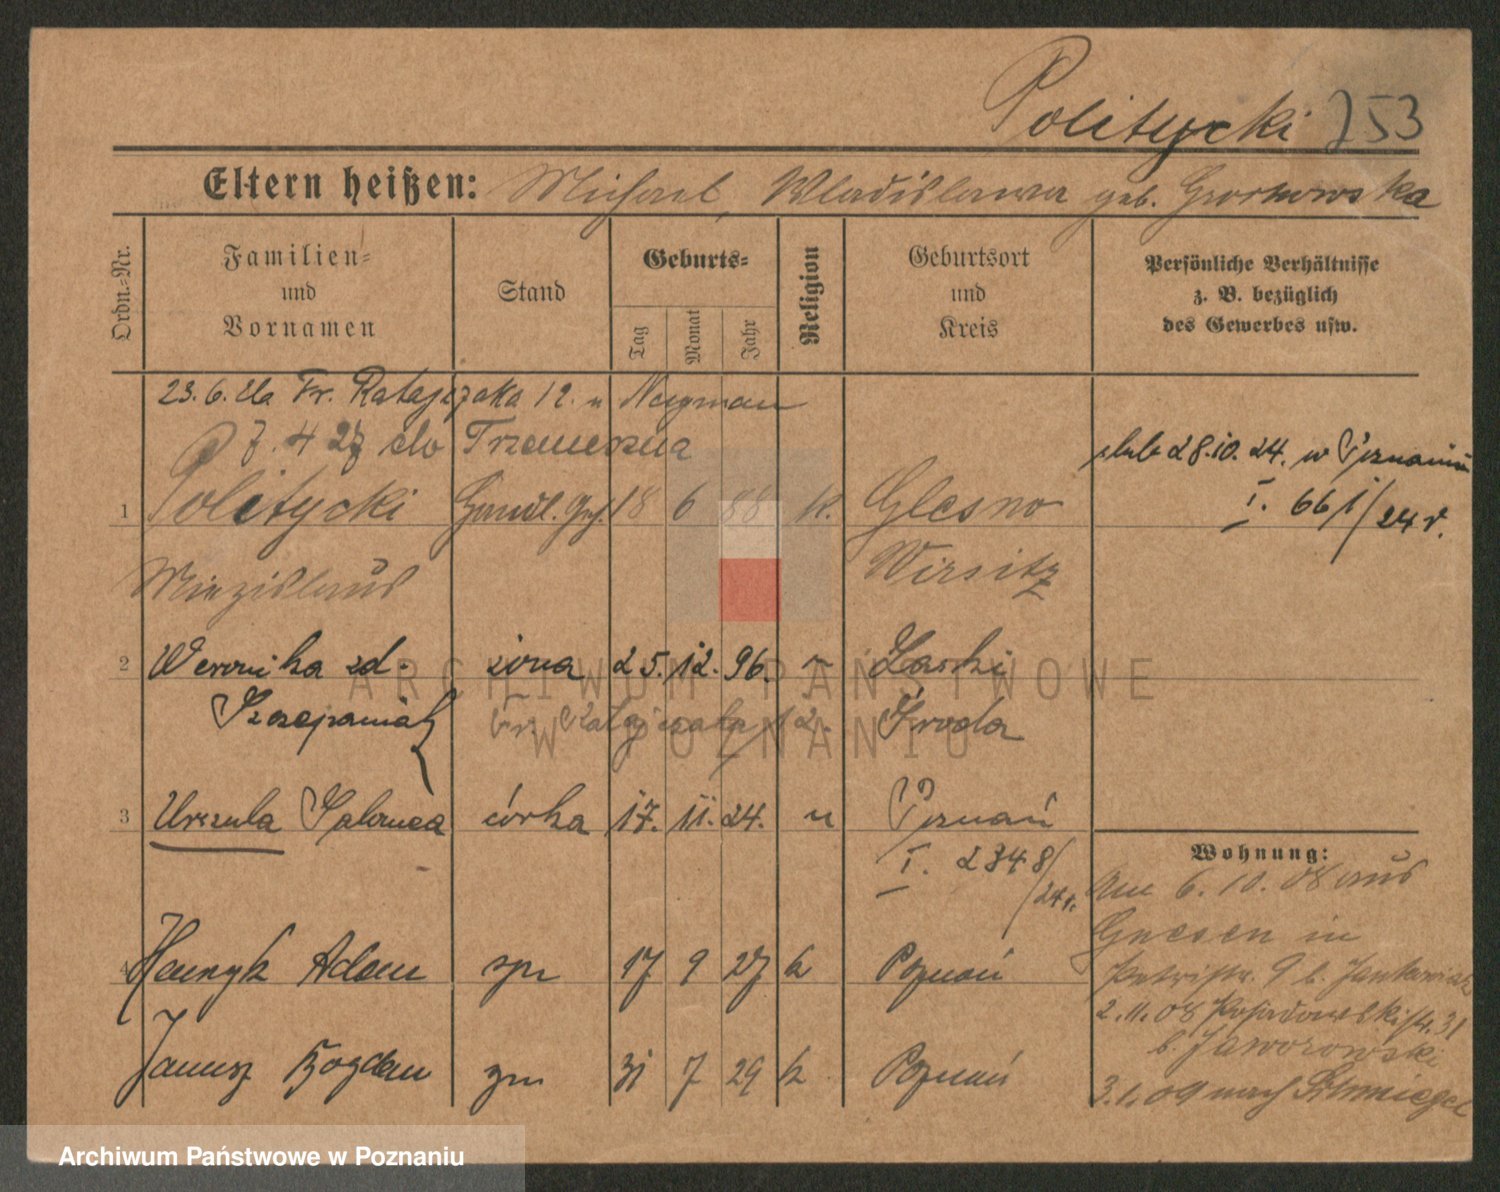 Politycki 253
Eltern heißen: Michael, Wladislawa geb.
Ordn.-Nr.
Familien-
und
Vornamen
Stand
Geburts-
Tag
Monat
Jahr
Religion
Geburtsort
und
Kreis
Persönliche Verhältnisse
z. B. bezüglich
des Gewerbes usw.
23.6. Fr. Ratajczaka 12. u Nayman
7. 4 27 do Trzemeszna
ślub 28.10.24. w Poznaniu
I. 661/24 r.
1 Politycki 18 6 88 k. Glesno
Miezislaus Wirsitz
2 Weronika zd. żona 25. 12. 96. Laski
Szczepaniak Fr. Ratajczaka 12. Środa
3 Urszula Salomea córka 17. 11. 24. Poznań
I. 2348/24 r.
4 Henryk Adam syn 17 9 27 k Poznań
Janusz Bogdan syn 31 7 29 k Poznań
Wohnung:
Am 6. 10. 08 aus
Gnesen in
Petristr. 9 b. Jankowiak
2.11.08 Posadowskistr. 31
b. Jaworowski
3.1.09 nach Schmiegel
ARCHIWUM PAŃSTWOWE
W POZNANIU
Archiwum Państwowe w Poznaniu